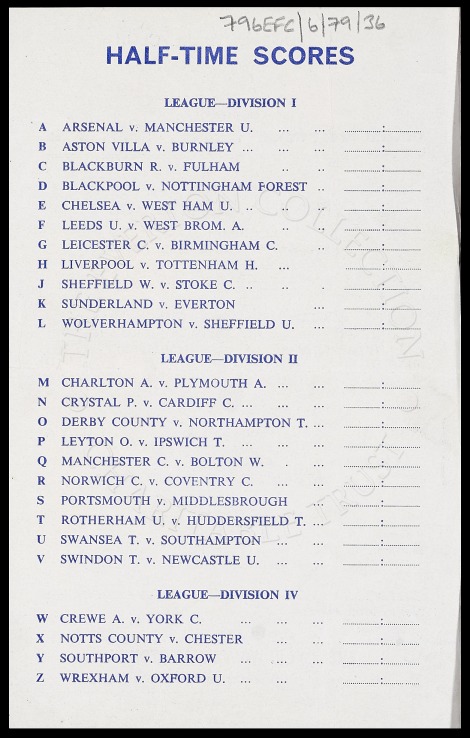 796EFC/6/79/36
HALF-TIME SCORES
LEAGUE—DIVISION I
A ARSENAL v. MANCHESTER U. ... ... ............:............
B ASTON VILLA v. BURNLEY ... ... ... ............:............
C BLACKBURN R. v. FULHAM .. .. ............:............
D BLACKPOOL v. NOTTINGHAM FOREST .. ............:............
E CHELSEA v. WEST HAM U. .. .. .. ............:............
F LEEDS U. v. WEST BROM. A. .. ............:............
G LEICESTER C. v. BIRMINGHAM C. .. ............:............
H LIVERPOOL v. TOTTENHAM H. ... ............:............
J SHEFFIELD W. v. STOKE C. .. .. . ............:............
K SUNDERLAND v. EVERTON ... ... ............:............
L WOLVERHAMPTON v. SHEFFIELD U. ... ............:............
LEAGUE—DIVISION II
M CHARLTON A. v. PLYMOUTH A. ... ... ............:............
N CRYSTAL P. v. CARDIFF C. ... ... ... ............:............
O DERBY COUNTY v. NORTHAMPTON T. ... ............:............
P LEYTON O. v. IPSWICH T. ... ... ... ............:............
Q MANCHESTER C. v. BOLTON W. . ... ............:............
R NORWICH C. v. COVENTRY C. ... ... ............:............
S PORTSMOUTH v. MIDDLESBROUGH ... ............:............
T ROTHERHAM U. v. HUDDERSFIELD T. ... ............:............
U SWANSEA T. v. SOUTHAMPTON ... ... ............:............
V SWINDON T. v. NEWCASTLE U. ... ... ............:............
LEAGUE—DIVISION IV
W CREWE A. v. YORK C. ... ... ... ............:............
X NOTTS COUNTY v. CHESTER ... ... ............:............
Y SOUTHPORT v. BARROW ... ... ... ............:............
Z WREXHAM v. OXFORD U. ... ... ............:............